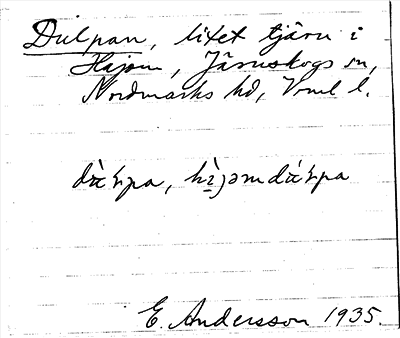 Dulpan, litet tjärn i
Hajom, Järnskogs sn,
Nordmarks hd, Vrml l.
E. Andersson 1935.